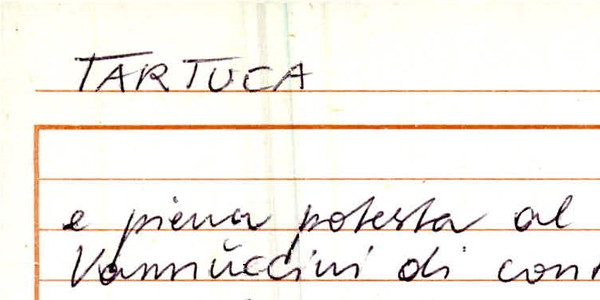 TARTUCA
e piena potesta al
Vannuccini di con